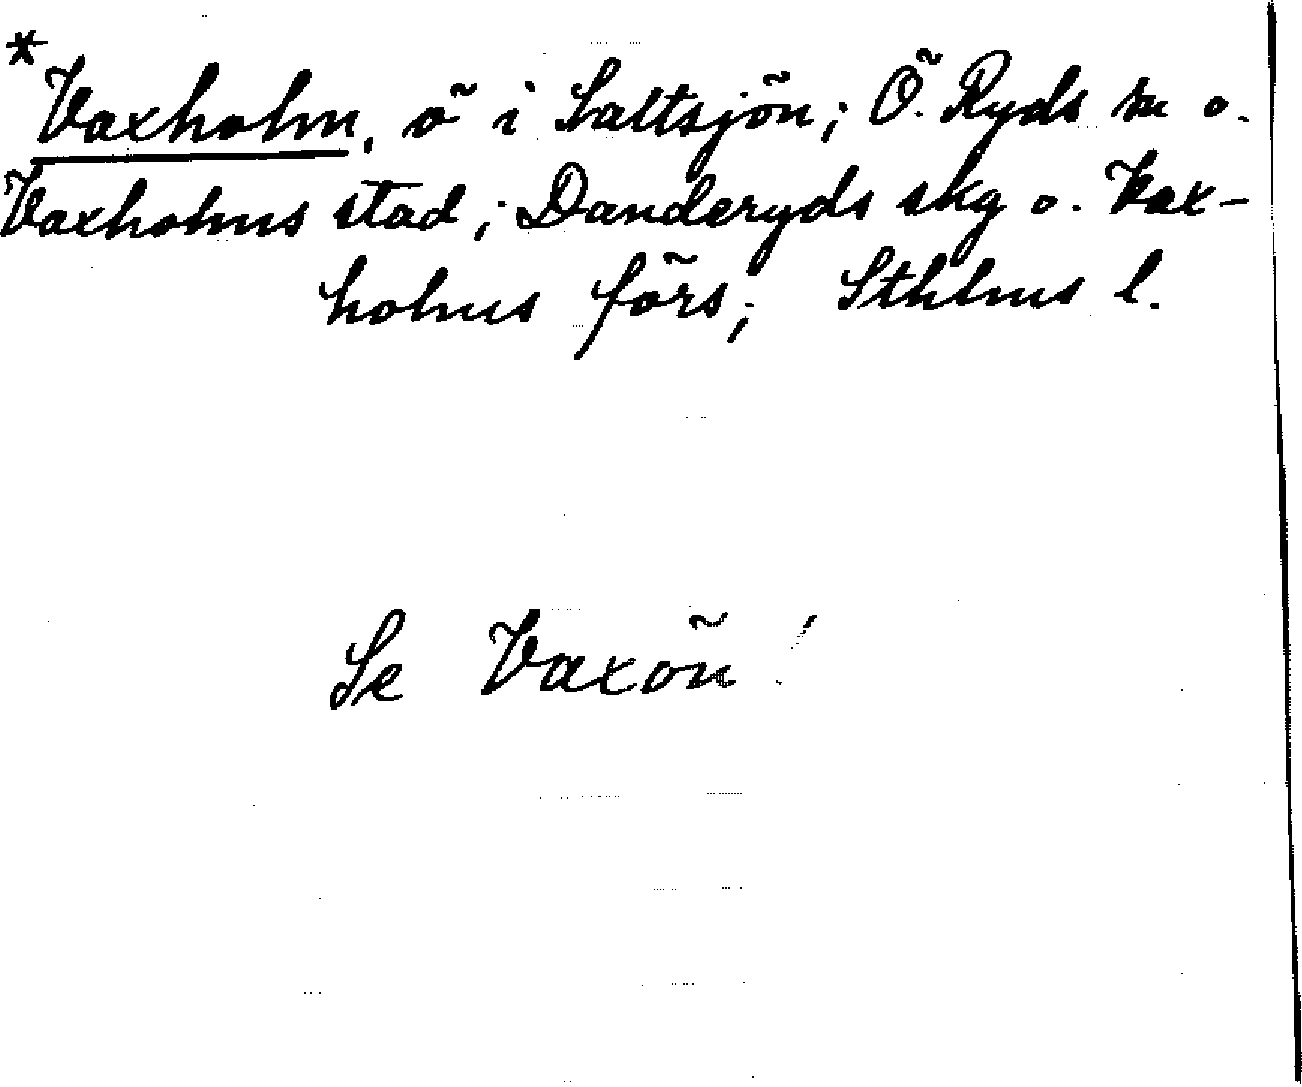 *Vaxholm, ö i Saltsjön; Ö. Ryds sn o.
Vaxholms stad; Danderyds skg o. Vax-
holms förs; Sthlms l.
Se Vaxön!